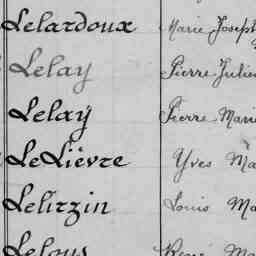 Lelardoux Marie Joseph
Lelay Pierre Julien
Lelay Pierre Marie
LeLièvre Yves Ma
Lelirzin Louis Ma
Lelous René Ma